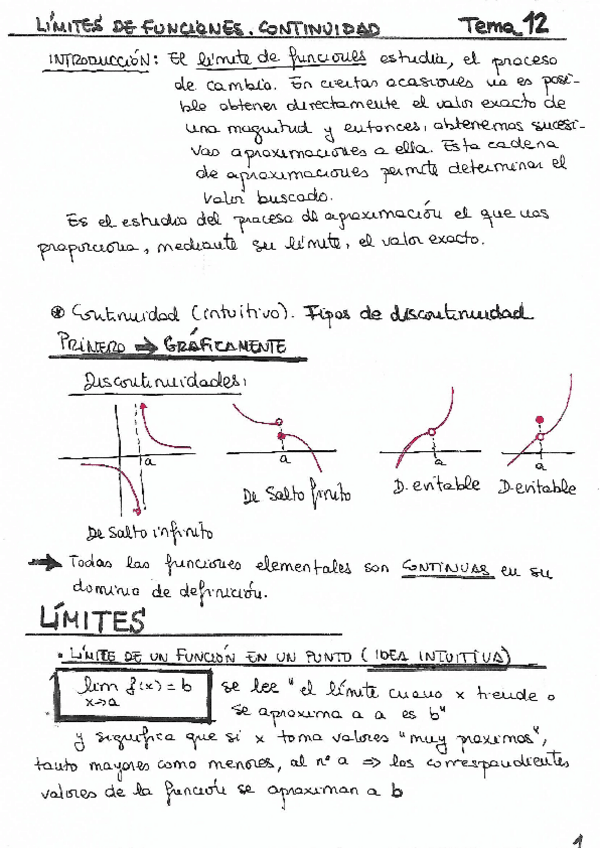 LÍMITES DE FUNCIONES. CONTINUIDAD Tema 12
INTRODUCCIÓN: El límite de funciones estudia, el proceso
de cambio. En ciertas ocasiones no es posi-
ble obtener directamente el valor exacto de
una magnitud y entonces, obtenemos sucesi-
vas aproximaciones a ella. Esta cadena
de aproximaciones permite determinar el
valor buscado.
Es el estudio del proceso de aproximación el que nos
proporciona, mediante su límite, el valor exacto.
Continuidad (intuitivo). Tipos de discontinuidad
PRIMERO ➔ GRÁFICAMENTE
Discontinuidades:
a a a a
De Salto infinito
De Salto finito
D. evitable
D. evitable
➔ Todas las funciones elementales son CONTINUAS en su
dominio de definición.
LÍMITES
• LÍMITE DE UN FUNCIÓN EN UN PUNTO (IDEA INTUITIVA)
lim f(x) = b
x→a
se lee "el límite cuano x tiende o
se aproxima a a es b"
y significa que si x toma valores "muy proximos",
tanto mayores como menores, al nº a ⇒ los correspondientes
valores de la función se aproximan a b
1